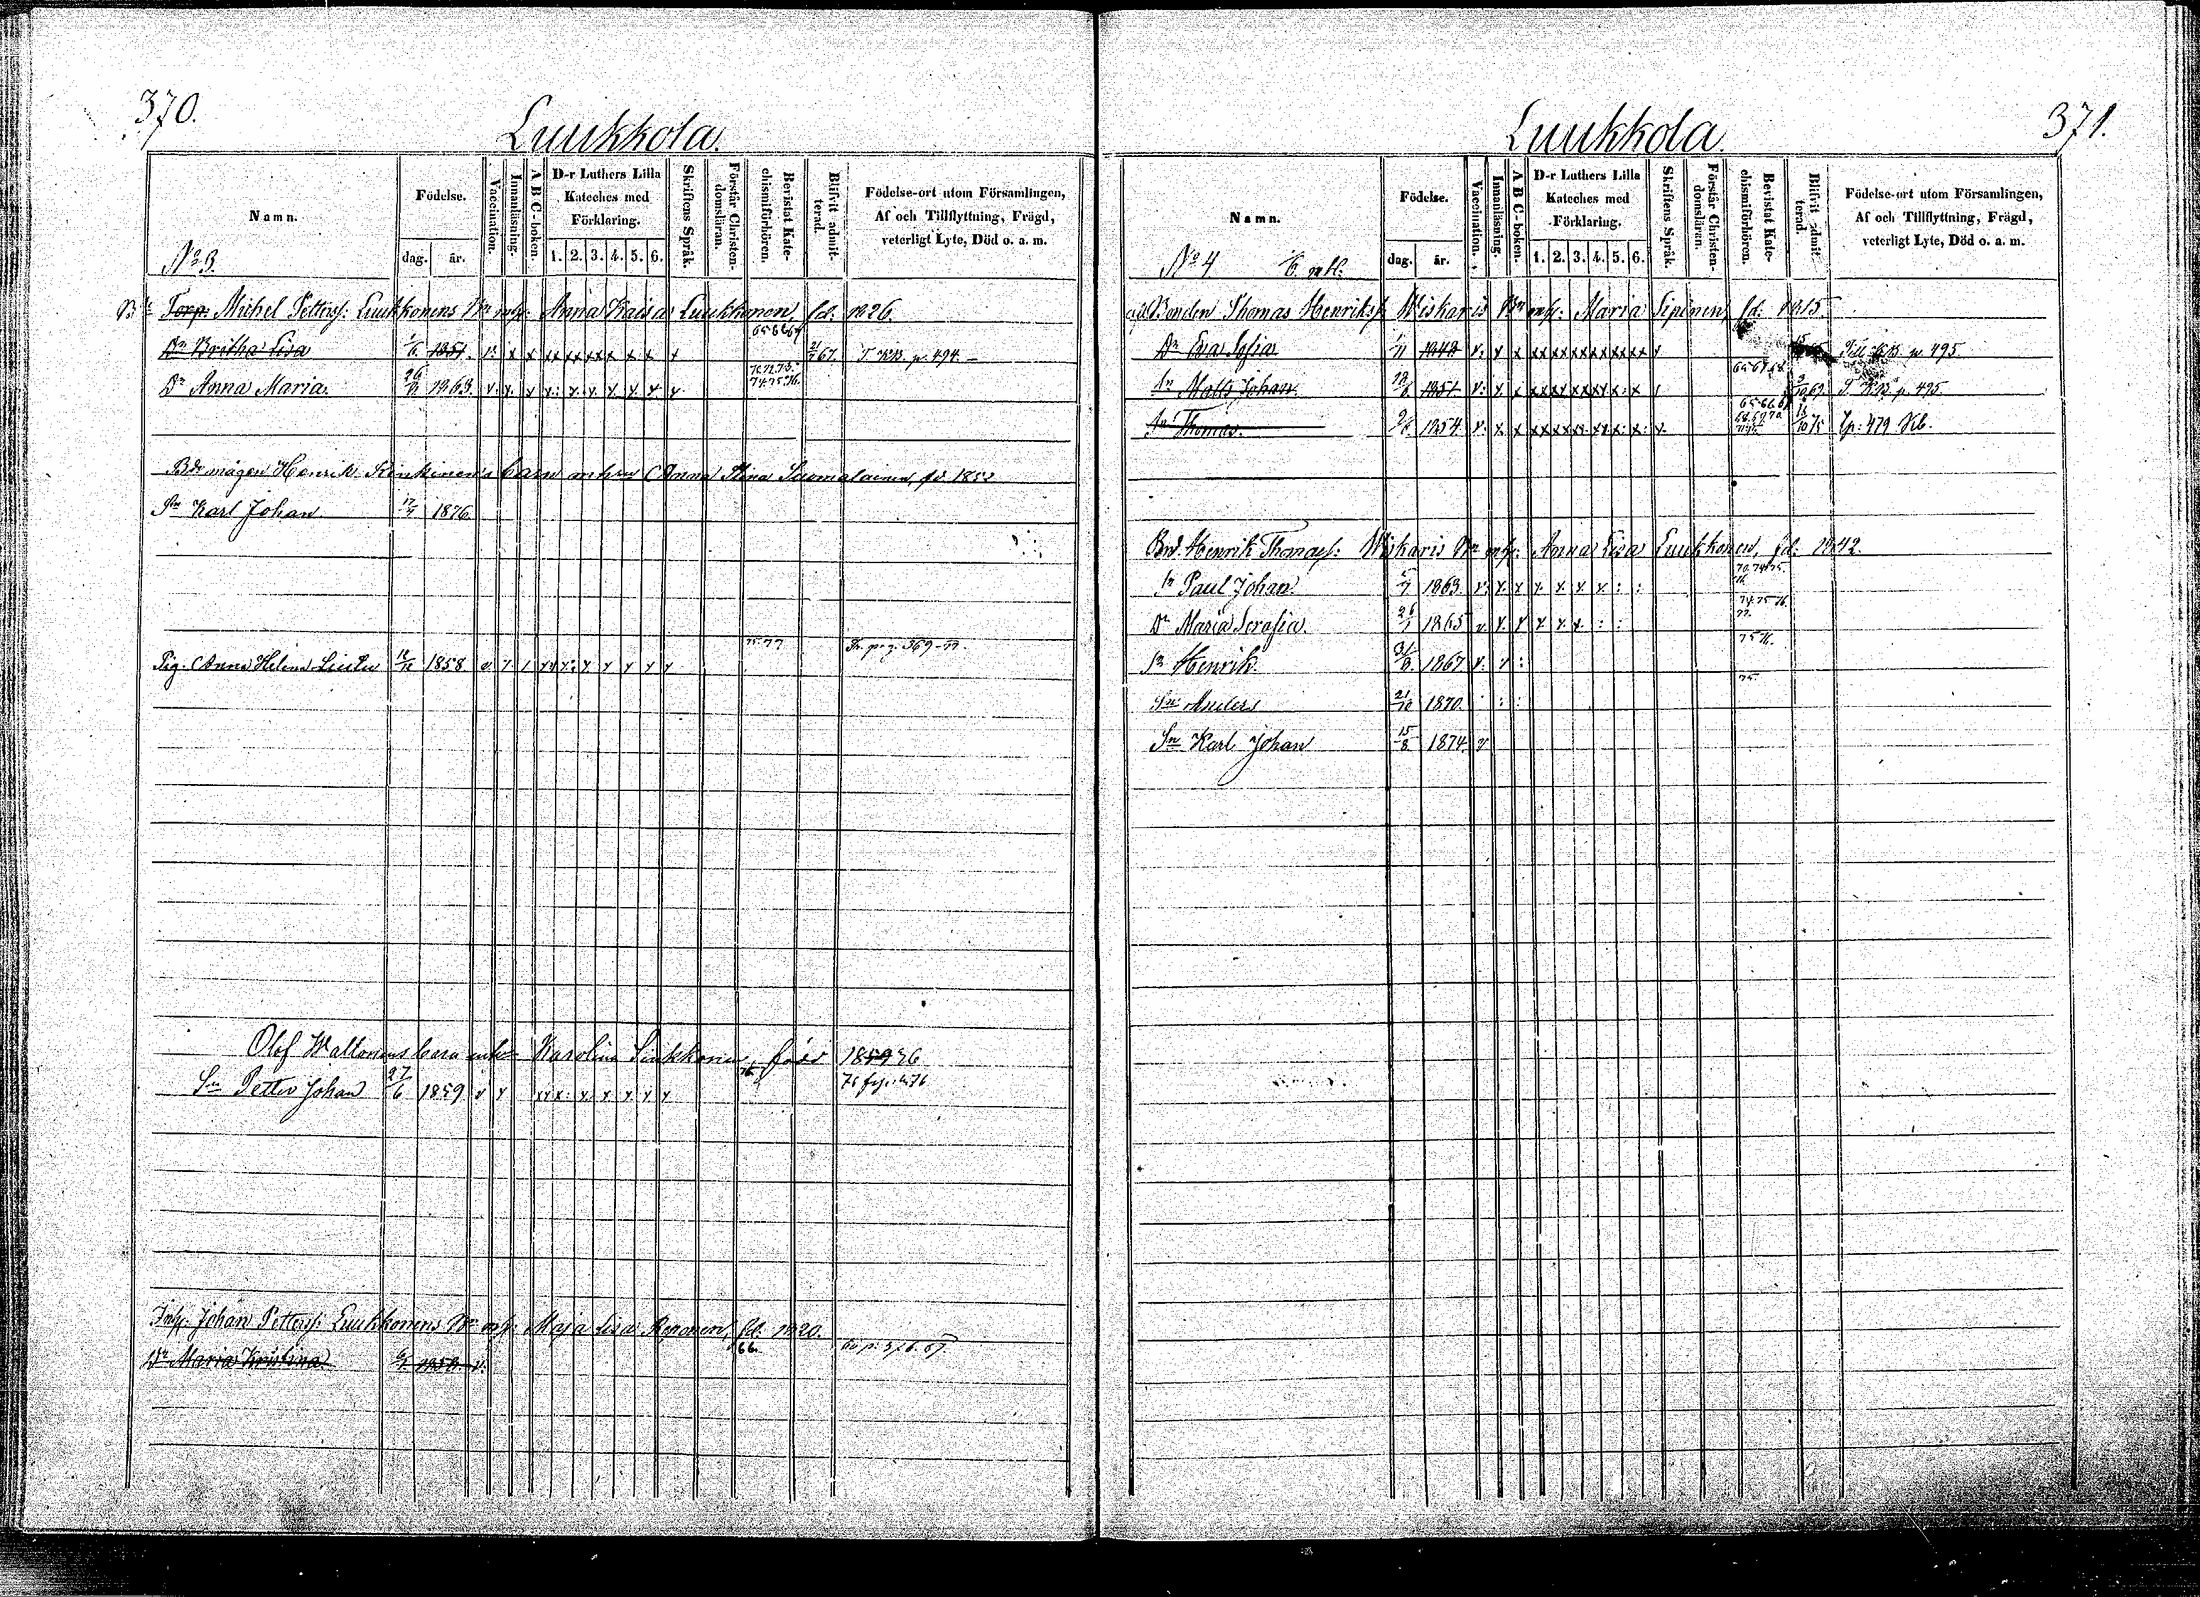 370.
Luukkola.
Namn.
Födelse.
dag. år.
Vaccination.
Innanläsning.
A B C-boken.
D-r Luthers Lilla Kateches med Förklaring.
1. 2. 3. 4. 5. 6.
Skriftens Språk.
Förstår Christendomsläran.
Bevistat Katechismiförhören.
Blifvit admitterad.
Födelse-ort utom Församlingen, Af och Tillflyttning, Frägd, veterligt Lyte, Död o. a. m.
No 3.
Torp. Michel Petterss: Luukkonens Bn m/h: Anna Kaisa Luukkonen, fd: 1826.
Dr Britha Lisa 1/6. 1851. v: x x x x x x x x x x x 65.66.67 21/7 67. T. KB. p. 494.
Dr Anna Maria. 26/9. 1863. v. x. x x: x. x. x. x. x x 70.72.73. 74.75.76.
Bde mågen Henrik Kinkinen's barn m hru Anna Stina Suomalainen, fd 1853
Sn Karl Johan 17/7 1876.
Pig. Anna Helena Liutu 12/12 1858 v. x 1 x x x: x x x x x x 75.77 Fr. pag. 369-77
Olof Waltonens barn m h: Karolina Luukkonen, född 1859 36
Sn Petter Johan 27/6 1859 v x x x x: x x x x x 76. 75 76
Inh. Johan Petterss: Luukkonens Bn m/h: Maja Lisa Reponen, fd: 1820.
Dr Maria Kristina 6/5 1858. v. 66. p. 376. 67.
371.
Luukkola.
Namn.
Födelse.
dag. år.
Vaccination.
Innanläsning.
A B C-boken.
D-r Luthers Lilla Kateches med Förklaring.
1. 2. 3. 4. 5. 6.
Skriftens Språk.
Förstår Christendomsläran.
Bevistat Katechismiförhören.
Blifvit admitterad.
Födelse-ort utom Församlingen, Af och Tillflyttning, Frägd, veterligt Lyte, Död o. a. m.
No 4
Bonden Thomas Henrikss: Wiskaris Bn m/h: Maria Sipinen, fd: 1815.
Dr Eva Sofia 1/11 1848 v: x x x x x x x x x x x x Till KB p. 495.
Sn Matts Johan. 12/6. 1851. v: x x x x x x x x x: x 1 65.67.68. 3/10 69. T. KB. p. 495.
Sn Thomas. 9/6. 1854. v: x x x x x x x. x x x: x: x. 65.66.67 68.69.70. 13/10 75 p: 479 Kb.
Bnd. Henrik Thomass: Wiskaris Bn m/h: Anna Lisa Luukkonen, fd: 1842.
Sn Paul Johan. 5/7 1863. v: x. x x. x. x x. : : 70.74.75. 76.
Dr Maria Serafia. 26/7 1865 v. x. x x x x. : : 74.75.76. 77.
Sn Henrik. 31/9. 1867 v. x : 75 76.
Sn Anders 21/10 1870. · : : 75.
Sn Karl Johan 15/8 1874. v